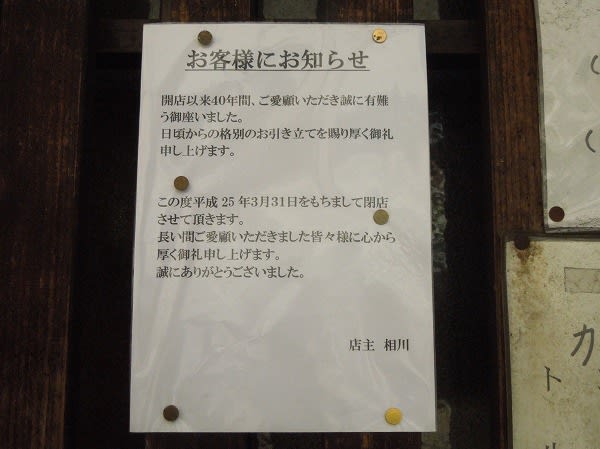 お客様にお知らせ
開店以来40年間、ご愛顧いただき誠に有難
う御座いました。
日頃からの格別のお引き立てを賜り厚く御礼
申し上げます。
この度平成 25 年3月31日をもちまして閉店
させて頂きます。
長い間ご愛顧いただきました皆々様に心から
厚く御礼申し上げます。
誠にありがとうございました。
店主 相川
カ
ト